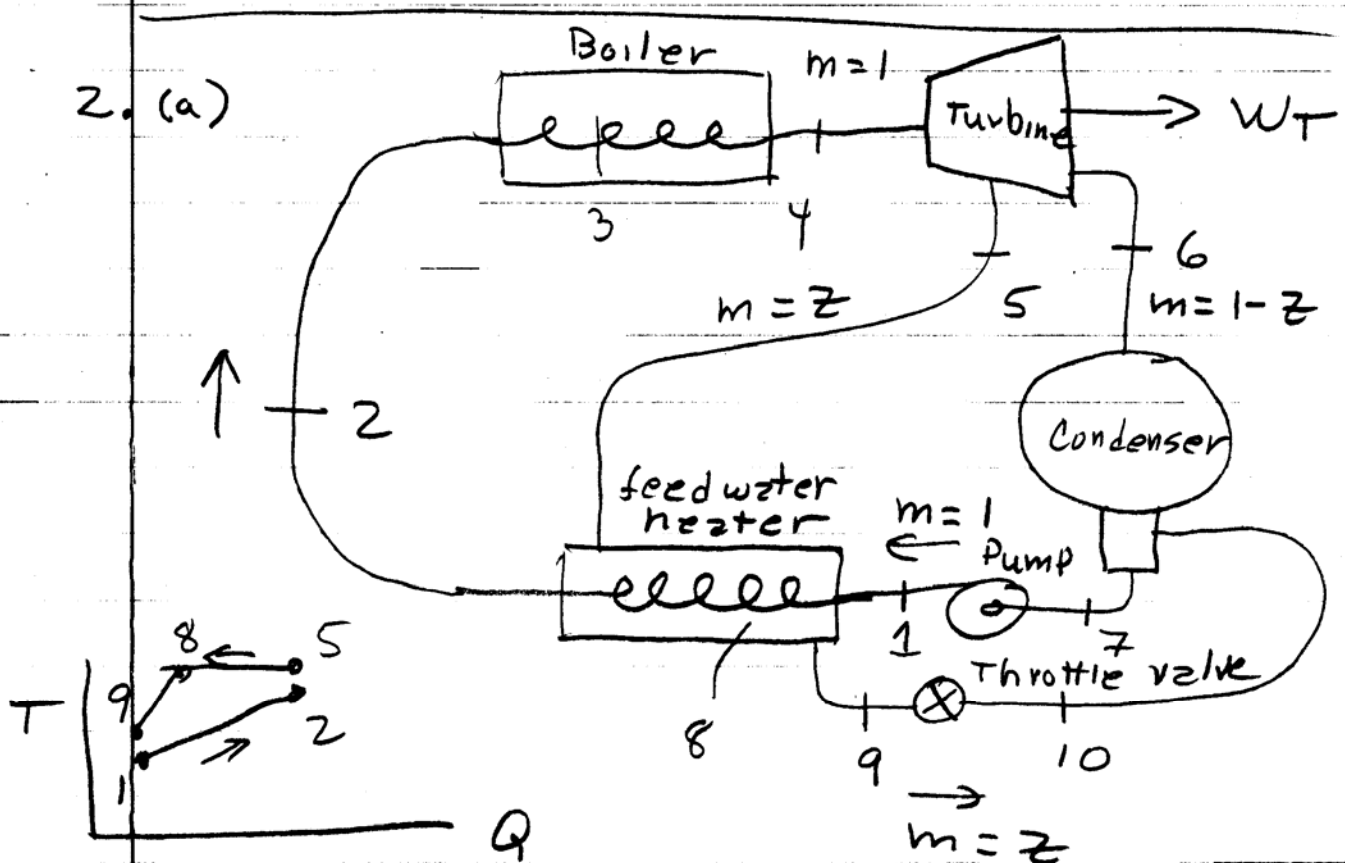 2. (a)
Boiler
m = 1
Turbine
WT
3
4
m = z
5
6
m = 1 - z
2
Condenser
feedwater
heater
m = 1
Pump
1
7
Throttle valve
8
9
10
m = z
T
8
5
9
2
1
Q